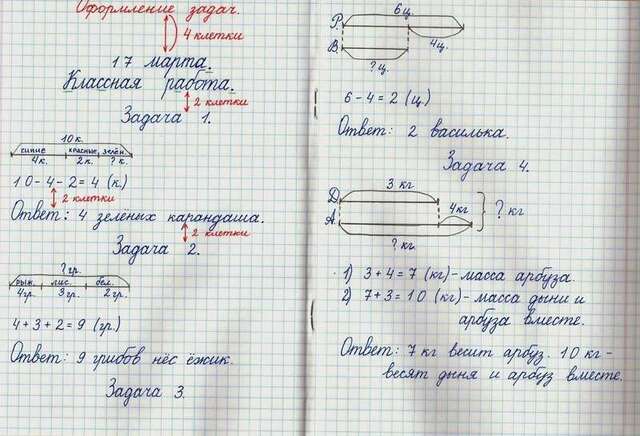 Оформление задач.
4 клетки
17 марта.
Классная работа.
2 клетки
Задача 1.
10к.
синие красные зелён.
4к. 2к. ?к.
10-4-2=4 (к.)
2 клетки
Ответ: 4 зелёных карандаша.
2 клетки
Задача 2.
? гр.
рыж. лис. бел.
4гр. 3гр. 2гр.
4+3+2=9 (гр.)
Ответ: 9 грибов нёс ёжик.
Задача 3.
6ц.
Р.
4ц.
В.
?ц.
6-4=2 (ц.)
Ответ: 2 василька.
Задача 4.
3 кг
Д.
4кг ? кг
А.
?кг.
1) 3+4=7 (кг)-масса арбуза.
2) 7+3=10 (кг)-масса дыни и
арбуза вместе.
Ответ: 7 кг весит арбуз. 10 кг-
весят дыня и арбуз вместе.